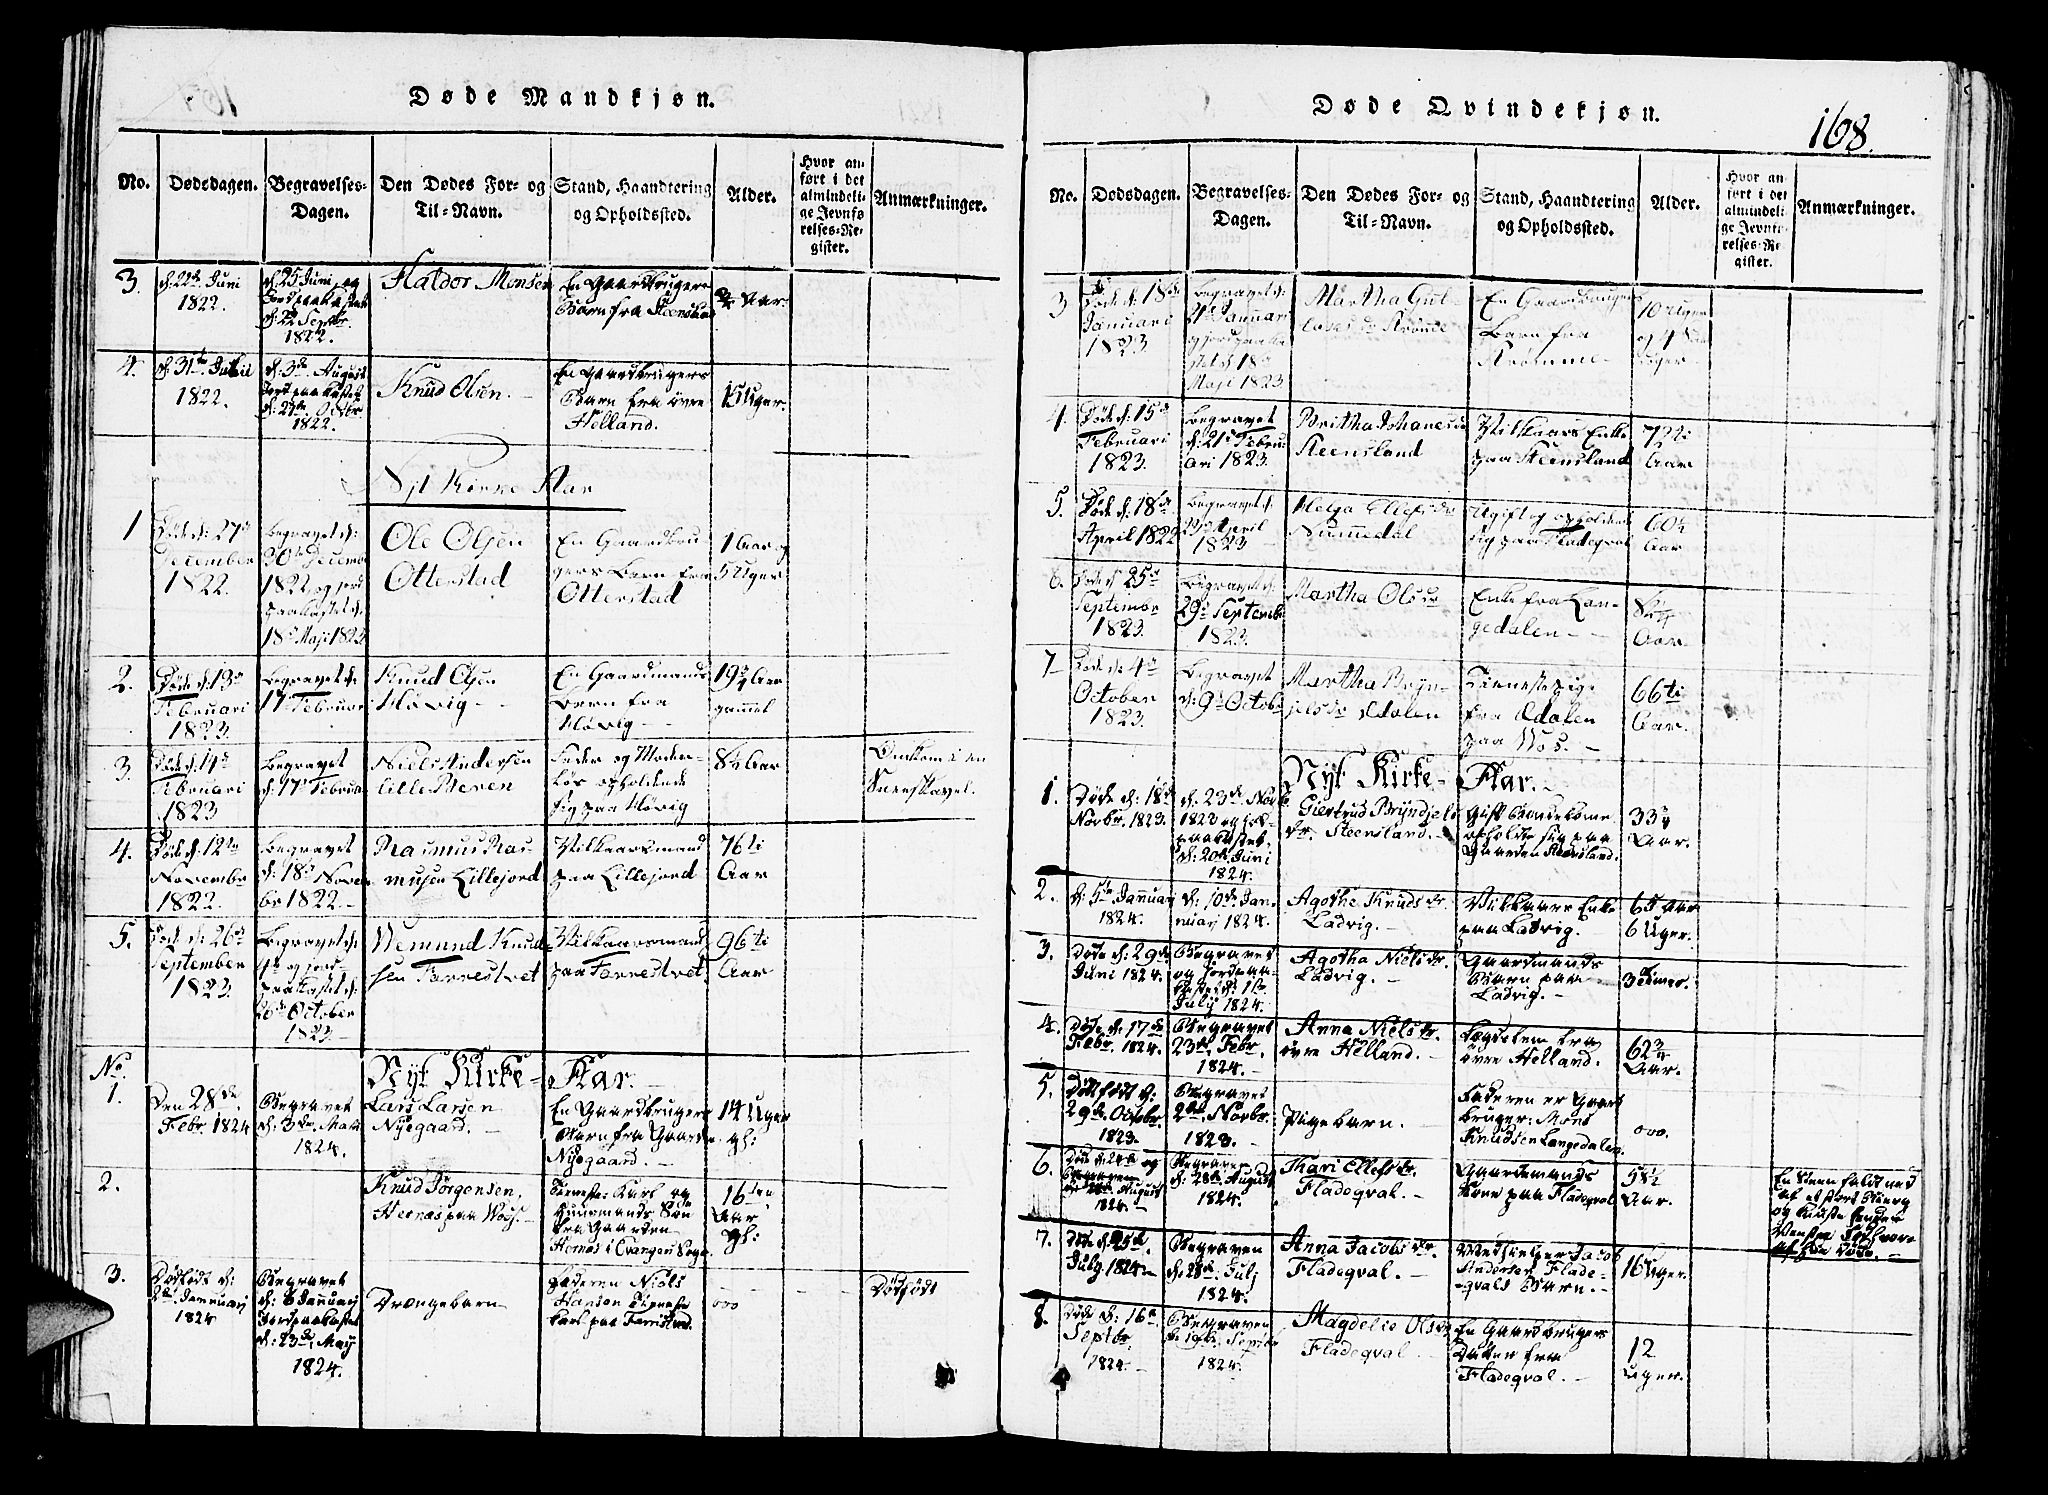 Døde Mandkjøn.
No.
Dødsdagen.
Begravelses-
Dagen.
Den Dødes For- og
Til-Navn.
Stand, Haandtering
og Opholdssted.
Alder.
Hvor an-
ført i det
almindeli-
ge Jevnfø
relses-Re-
gister.
Anmærkninger.
3.
d: 22de Juni
1822.
d: 25 Juni og
Jordpaakastet
d: 22 Septbr.
1822.
Haldor Monsen
En Gaardbrugers
Barn fra Steensland
Aar.
4.
d: 31te Julii
1822.
d: 3de August
Jordpaakastet
1822.
Knud Olsen.
En Gaardbrugers
Barn fra øvre
Helland.
Uger.
Nyt Kirke Aar
1
Døde d: 27de
December
1822.
Begravet d:
30te Decemb
1822 og jord
paakastet d:
18de Maji 1823
Ole Olsen
Otterstad
En Gaardbru-
gers Barn fra
Otterstad
1 Aar og
5 Uger
2.
Døde d: 13de
Februari
1823.
Begravet d:
17 Februar
Knud Olsen
Høvig
En Gaardmands
Barn fra
Høvig
19 Aar
gammel
3.
Døde d: 14de
Februari
1823
Begravet
d: 17 Februar
Niels Andersen
Lille Meren
Fader og Moder-
løs opholdende
sig paa Høvig
8 Aar
Omkom i en
Sneeskavel.
4.
Døde d: 12te
Novembr
1822.
Begravet
d: 18de Novem
br 1822.
Rasmus Ras-
musen Lillejord
Vilkaarsmand
paa Lillejord
76ti
Aar
5.
Døde d: 26de
September
1823.
Begravet d:
og jord-
paakastet d:
26de October
1823.
Wemund Knud-
sen Farrestvet
Vilkaarsmand
paa Farrestvet.
96ti
Aar
No.
Nyt Kirke-Aar.
1.
Den 28de
Febr. 1824
Begravet
d: 3de Martii
1824.
Lars Larsen
Nyegaard.
En Gaardbrugers
Barn fra Gaarden
Nyegaard.
14 Uger
gl:
2.
Knud Jørgensen,
Hernæs paa Woss.
Tieneste Karl og
Huusmands Søn
fra Gaarden
Hernæs i Evanger Sogn
16ten
Aar
gl:
3.
Dødfødt d:
Januarj
1824
Begravet
d: 6 Januarj
Jordpaakastet
d: 23de Maij
1824.
Drengebarn
Faderen Niels
Hansen Tieneste
karl paa Farrestved.
ooo
Dødfødt
Døde Qvindekjøn.
168.
No.
Dødsdagen.
Begravelses-
Dagen.
Den Dødes For- og
Til-Navn.
Stand, Haandtering
og Opholdssted.
Alder.
Hvor an-
ført i det
almindeli-
ge Jevnfø-
relses-Re-
gister.
Anmærkninger.
3
Døde d: 18de
Januari
1823
Begravet d:
Januari
og jordpaaka
stet d 18de
Maji 1823
Martha Gul-
En Gaardbrugers
Barn fra
10 Uger
Uger
4.
Døde d: 15de
Februari
1823.
Begravet
d: 21de Febru
ari 1823.
Britha Johanesdr
Steensland
Vilkaars Enke
paa Steensland
72ti
Aar
5.
Døde d: 18de
April 1822
Begravet d:
April
1823
Helga Elefsdr
Nummedal
Ugift og opholder
sig paa Fladeqval
60
Aar
6.
Døde d 25de
Septembr
1823.
Begravet d:
29de Septemb
1823.
Martha Olsdr
Enke fra Lan-
gedalen
Aar
7
Døde d: 4de
October
1823.
Begravet
d: 9de Octobr
Martha Bryn-
jelsdr Ødalen
Tienestepige
fra Ødalen
paa Wos.
66ti
Aar
Nyt Kirke-Aar.
1.
Døde d: 18de
Novbr. 1823.
d. 23de Novbr.
1823 og jord-
paakastet
d: 20de Juni
1824.
Giertrud Bryndjels
dr. Steensland.
Gift Bondekone
opholdte sig paa
Gaarden Steensland.
33
Aar.
2.
d: 5te Januarj
1824.
d. 10de Ja-
nuarj 1824.
Agothe Knudsdr.
Ladvig.
Vilkaars Enke
paa Ladvig.
65 Aar
6 Uger.
3.
Døde d: 29de
Juni 1824.
Begravet
og Jordpaa-
kastet d: 1te
July 1824.
Agotha Nielsdr.
Ladvig.
Gaardmands
Barn paa
Ladvig.
4.
Døde d: 17de
Febr. 1824.
Begravet
23de Febr.
1824.
Anna Nielsdr.
øvre Helland.
Lægdslem fra
øvre Helland.
62 3/4
Aar.
5.
Dødfødt d:
29de Octobr
1823.
Begravet
2de Novbr.
1823.
Pigebarn.
Faderen er Gaard
bruger: Mons
Knudsen Langedalen.
ooo.
6.
Døde d: 24de og
August
1824.
Begraven
d: 28de August
1824.
Mari Ellefsdr.
Fladeqval.
Gaardmands
Kone paa Fladeqval
58½
Aar.
En Steen faldt ned
af et stort Bierg
7.
Døde d: 25de
July 1824.
Begraven
d: 28de Julj
1824.
Anna Jacobsdr.
Fladeqval.
Medhielper Jacob
Andersen Flade-
qvals Barn.
16 Uger.
8.
Døde d: 16de
Septbr.
1824.
Begraven
d: 19de Septbr
1824.
Magdelie Olsdr
Fladeqval
En Gaardbrugers
Datter fra
Fladeqval.
12
Uger.